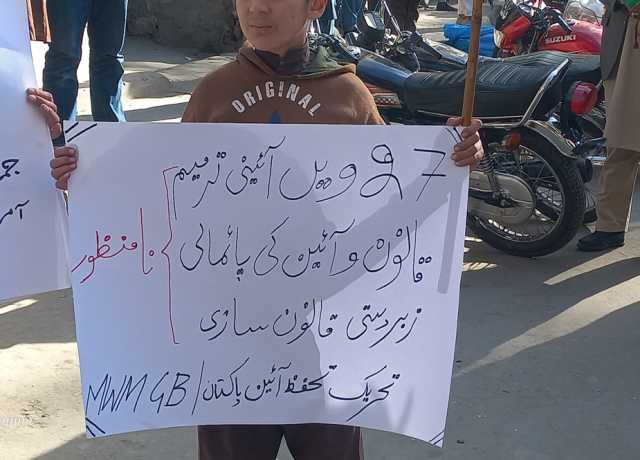 ORIGINAL
SUZUKI
27 ویں آئینی ترمیم
قانون و آئین کی پائمالی
نامنظور
زبردستی قانون سازی
تحریک تحفظ آئین پاکستان / MWM GB